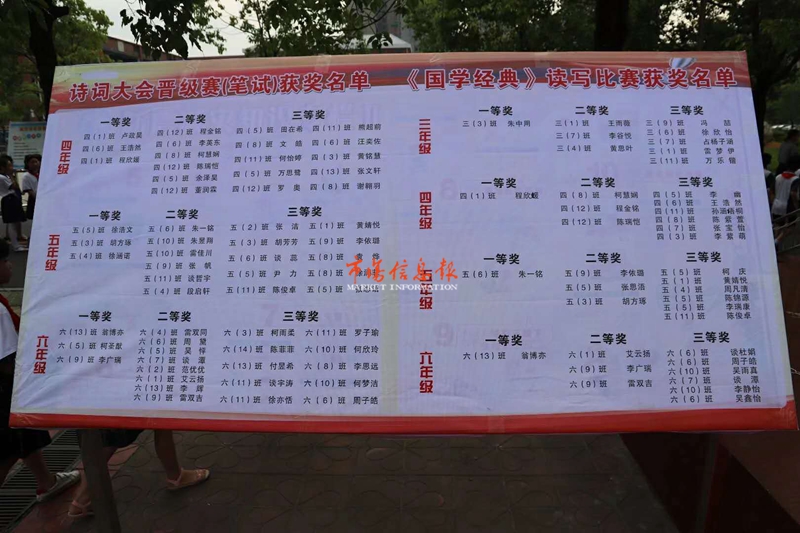 诗词大会晋级赛(笔试)获奖名单
四年级
一等奖
四(1)班 卢政昊
四(6)班 王浩然
四(1)班 程欣媛
二等奖
四(12)班 程金铭
四(6)班 李英东
四(8)班 柯慧娴
四(12)班 陈瑞恺
四(5)班 余泽昊
四(12)班 董润霖
三等奖
四(5)班 田在希 四(11)班 熊超前
四(8)班 文皓 四(6)班 汪奕佐
四(11)班 何怡婷 四(3)班 黄铭慧
四(8)班 方思鹭 四(13)班 张文轩
四(12)班 罗奥 四(8)班 谢翱羽
五年级
一等奖
五(5)班 徐浩文
五(3)班 胡方琢
五(4)班 徐涵诺
二等奖
五(6)班 朱一铭
五(10)班 朱昱翔
五(10)班 雷佳川
五(9)班 张帆
五(11)班 谈哲宇
五(4)班 段启轩
三等奖
五(2)班 张洁 五(1)班 黄婧悦
五(3)班 胡芳芳 五(9)班 李依璐
五(6)班 谈蕊 五(8)班
五(5)班 尹力 五(8)班
五(11)班 陈俊卓 五(5)班
六年级
一等奖
六(13)班 翁博亦
六(5)班 柯圣猷
六(9)班 李广瑞
二等奖
六(4)班 雷双同
六(6)班 周黛
六(5)班 吴悖
六(7)班 谈潭
六(2)班 范优优
六(1)班 艾云扬
六(13)班 李辉
六(9)班 雷双吉
三等奖
六(3)班 柯雨柔 六(11)班 罗子瑜
六(14)班 陈菲菲 六(10)班 何欣玲
六(13)班 付显希 六(8)班 李思远
六(11)班 谈宇涛 六(10)班 何梦洁
六(11)班 徐亦恬 六(6)班 周子皓
《国学经典》读写比赛获奖名单
三年级
一等奖
三(3)班 朱中用
二等奖
三(1)班 王雨薇
三(7)班 李谷悦
三(4)班 黄思叶
三等奖
三(9)班 冯喆
三(6)班 徐欣怡
三(7)班 占杨子涵
三(1)班 雷梦伊
三(11)班 万乐锴
四年级
一等奖
四(1)班 程欣媛
二等奖
四(8)班 柯慧娴
四(12)班 程金铭
四(12)班 陈瑞恺
三等奖
四(5)班 李幽
四(6)班 王浩然
四(11)班 孙涵栩桐
四(8)班 陈紫萱
四(7)班 张宝怡
四(3)班 李紫萌
五年级
一等奖
五(6)班 朱一铭
二等奖
五(9)班 李依璐
五(5)班 张恩洁
五(3)班 胡方琢
三等奖
五(5)班 柯庆
五(1)班 黄婧悦
五(4)班 周凡清
五(5)班 陈锦源
五(5)班 李瑞康
五(11)班 陈俊卓
六年级
一等奖
六(13)班 翁博亦
二等奖
六(1)班 艾云扬
六(9)班 李广瑞
六(9)班 雷双吉
三等奖
六(6)班 谈杜娟
六(6)班 周子皓
六(10)班 吴雨真
六(7)班 谈潭
六(10)班 李静怡
六(6)班 吴鑫怡
市场信息报
MARKET INFORMATION